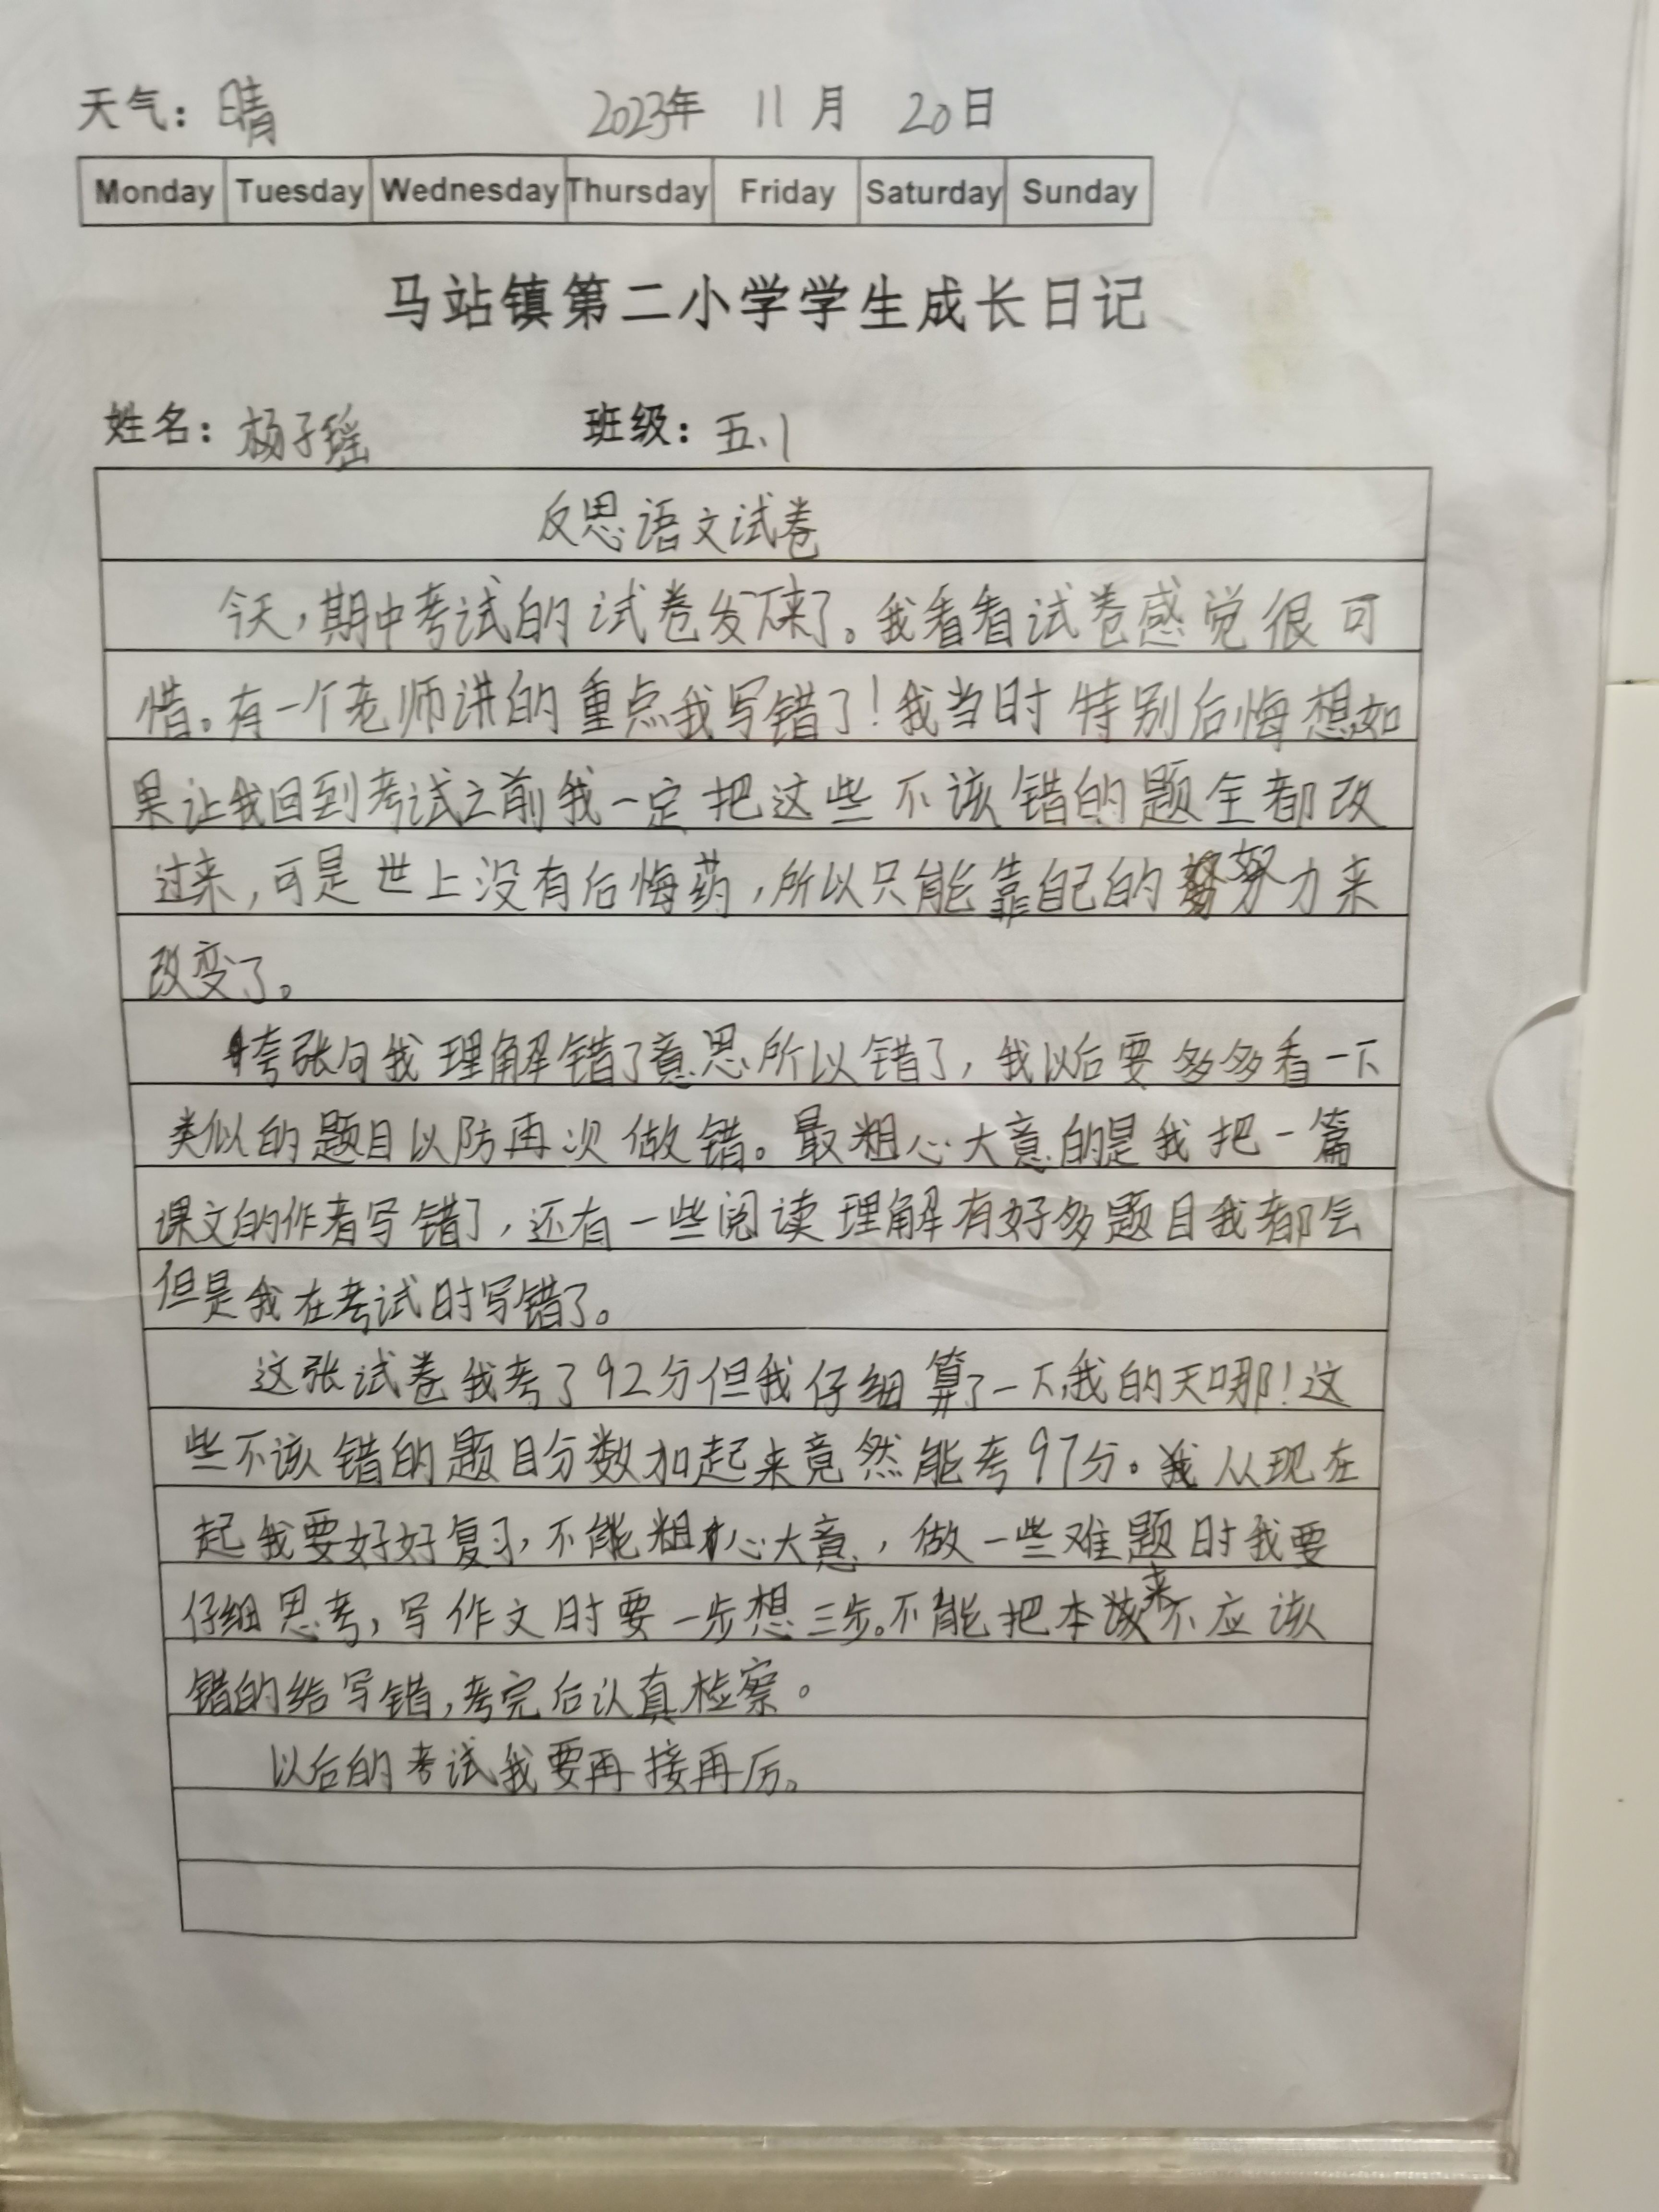 天气：晴 2023年 11月 20日
Monday Tuesday Wednesday Thursday Friday Saturday Sunday
马站镇第二小学学生成长日记
姓名：杨子瑶 班级：五、1
反思语文试卷
今天，期中考试的试卷发下来了。我看看试卷感觉很可
惜。有一个老师讲的重点我写错了！我当时特别后悔想如
果让我回到考试之前我一定把这些不该错的题全都改
过来，可是世上没有后悔药，所以只能靠自己的努力来
改变了。
夸张句我理解错了意思所以错了，我以后要多多看一下
类似的题目以防再次做错。最粗心大意的是我把一篇
课文的作者写错了，还有一些阅读理解有好多题目我都会
但是我在考试时写错了。
这张试卷我考了92分但我仔细算了一下，我的天哪！这
些不该错的题目分数加起来竟然能考97分。我从现在
起我要好好复习，不能粗心大意，做一些难题时我要
仔细思考，写作文时要一步想三步。不能把本来不应该
错的给写错，考完后认真检察。
以后的考试我要再接再厉。